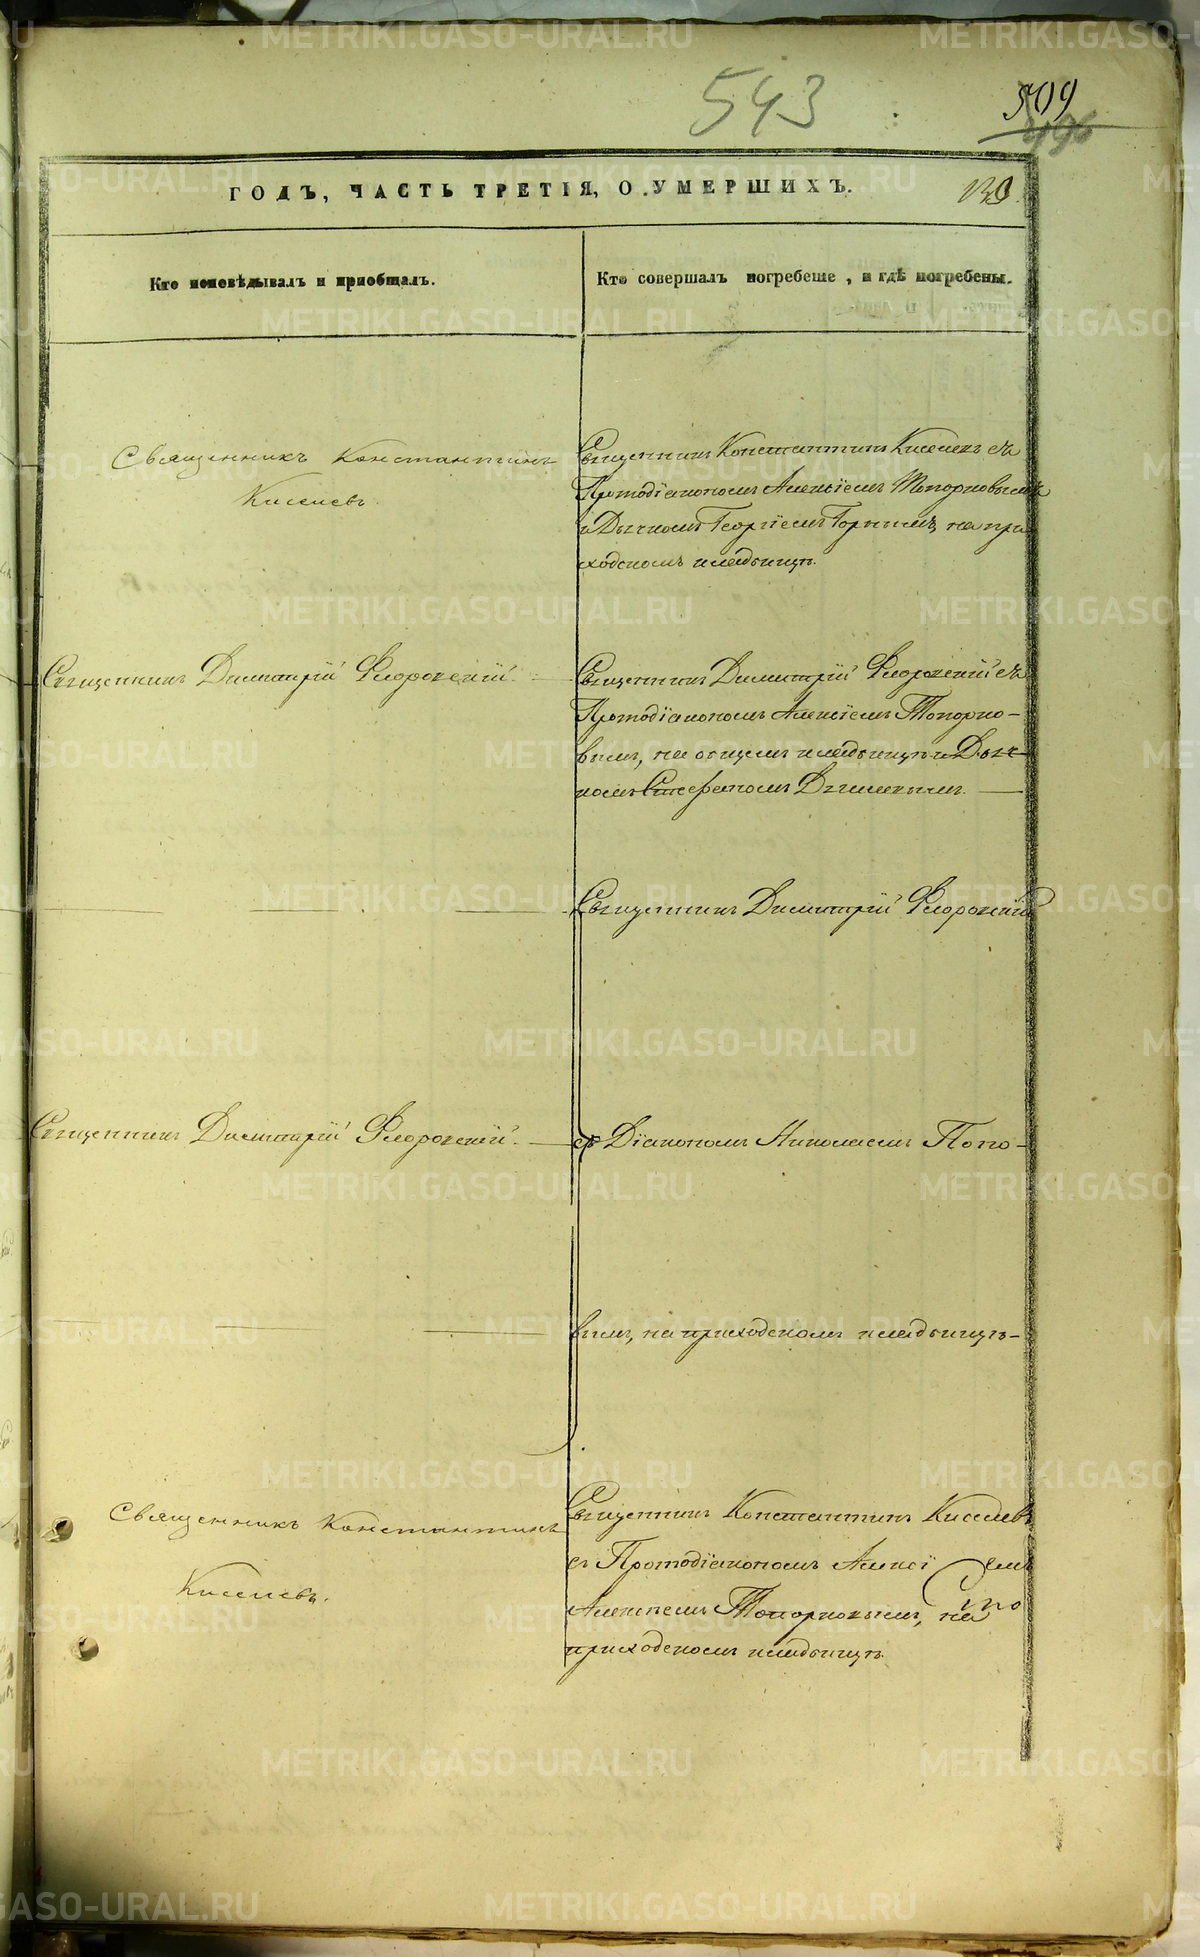 543
509
496
130
ГОДЪ, ЧАСТЬ ТРЕТІЯ, О УМЕРШИХЪ.
Кто исповѣдывалъ и пріобщалъ.
Кто совершалъ погребеніе, и гдѣ погребены.
Священникъ Константинъ
Киселевъ.
Священникъ Константинъ Киселевъ съ
Протодіакономъ Алексіемъ Топорковымъ
и Дьячкомъ Георгіемъ Горнымъ, на при
ходскомъ кладбищѣ.
Священникъ Димитрій Флоровскій.
Священникъ Димитрій Флоровскій съ
Протодіакономъ Алексіемъ Топорко-
вымъ, на общемъ кладбищѣ и Дьяч
комъ Стефаномъ
Священникъ Димитрій Флоровскій
Священникъ Димитрій Флоровскій.
съ Діакономъ Николаемъ Попо-
вымъ, на приходскомъ кладбищѣ
Священникъ Константинъ
Киселевъ.
Священникъ Константинъ Киселевъ
съ Протодіакономъ Алексі емъ
Алексіемъ Топорковымъ, на
приходскомъ кладбищѣ.
METRIKI.GASO-URAL.RU